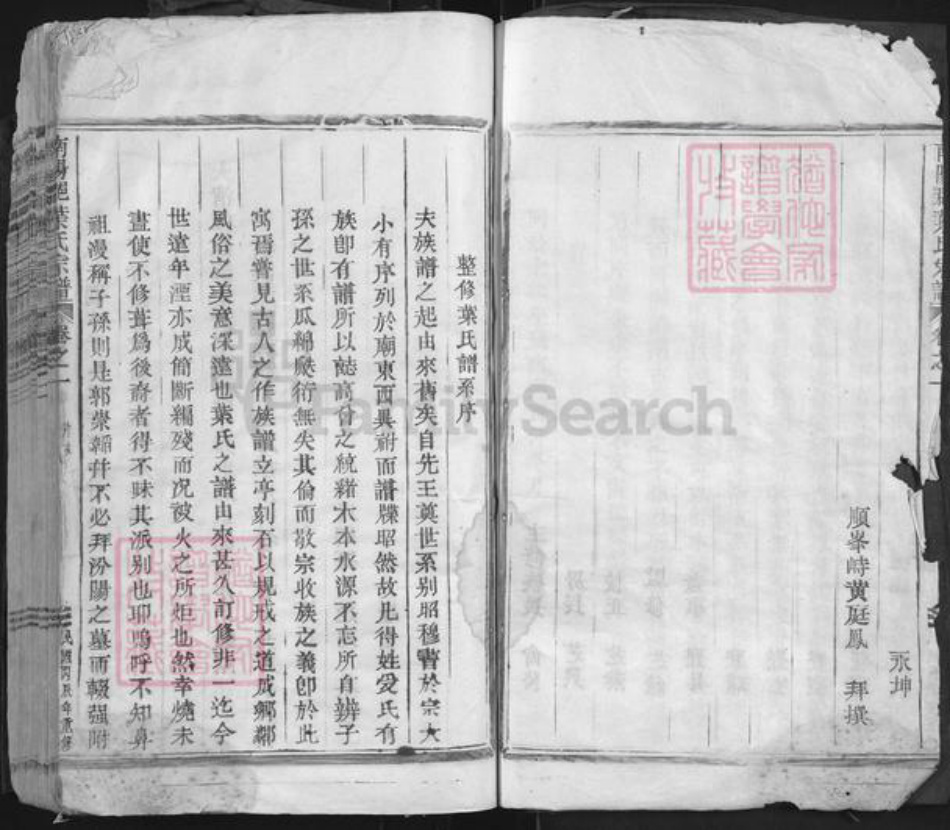 永坤
順峯時黄庭鳳 拜撰
整修葉氏譜系序
夫族譜之起由來舊矣自先王奠世系别昭穆書於宗大
小有序列於廟東西異祔而譜牒昭然故凡得姓受氏有
族卽有譜所以誌高曾之統緒木本水源不忘所自辨子
孫之世系瓜綿慶衍無失其倫而敬宗收族之義卽於此
寓焉嘗見古人之作族譜立亭刻石以規戒之道成鄉鄰
風俗之美意深遠也葉氏之譜由來甚久可修非一迄今
世遠年湮亦成簡斷編殘而况被火之所炬也然幸燒未
盡使不修葺爲後裔者得不昧其派别也耶嗚呼不知鼻
祖漫稱子孫則是郭崇韜幷不必拜汾陽之墓而輟强附
南陽 葉氏宗譜 卷之一
民國 辰年重修
FamilySearch
猶他家譜學會特藏